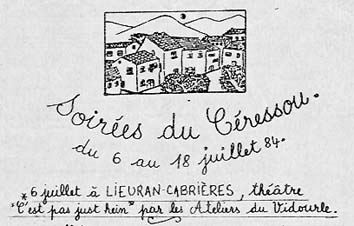 Soirées du Céressou.
du 6 au 18 juillet 84.
*6 juillet à LIEURAN-CABRIÈRES, théâtre
"C'est pas just hein" par les Ateliers du Vidourle.